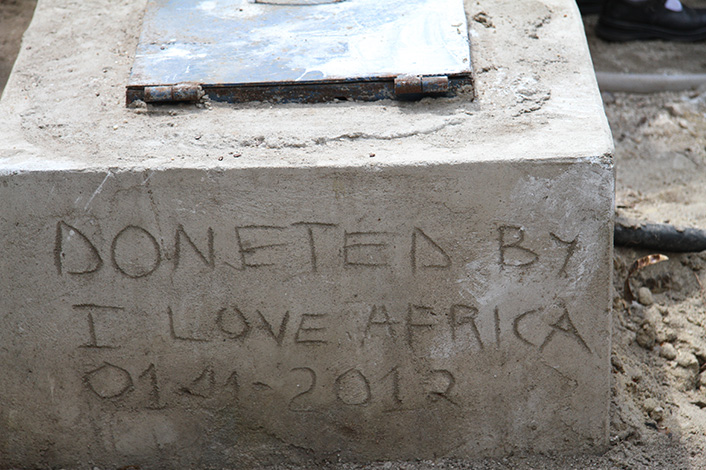 DONETED BY
I LOVE AFRICA
01-11-2012